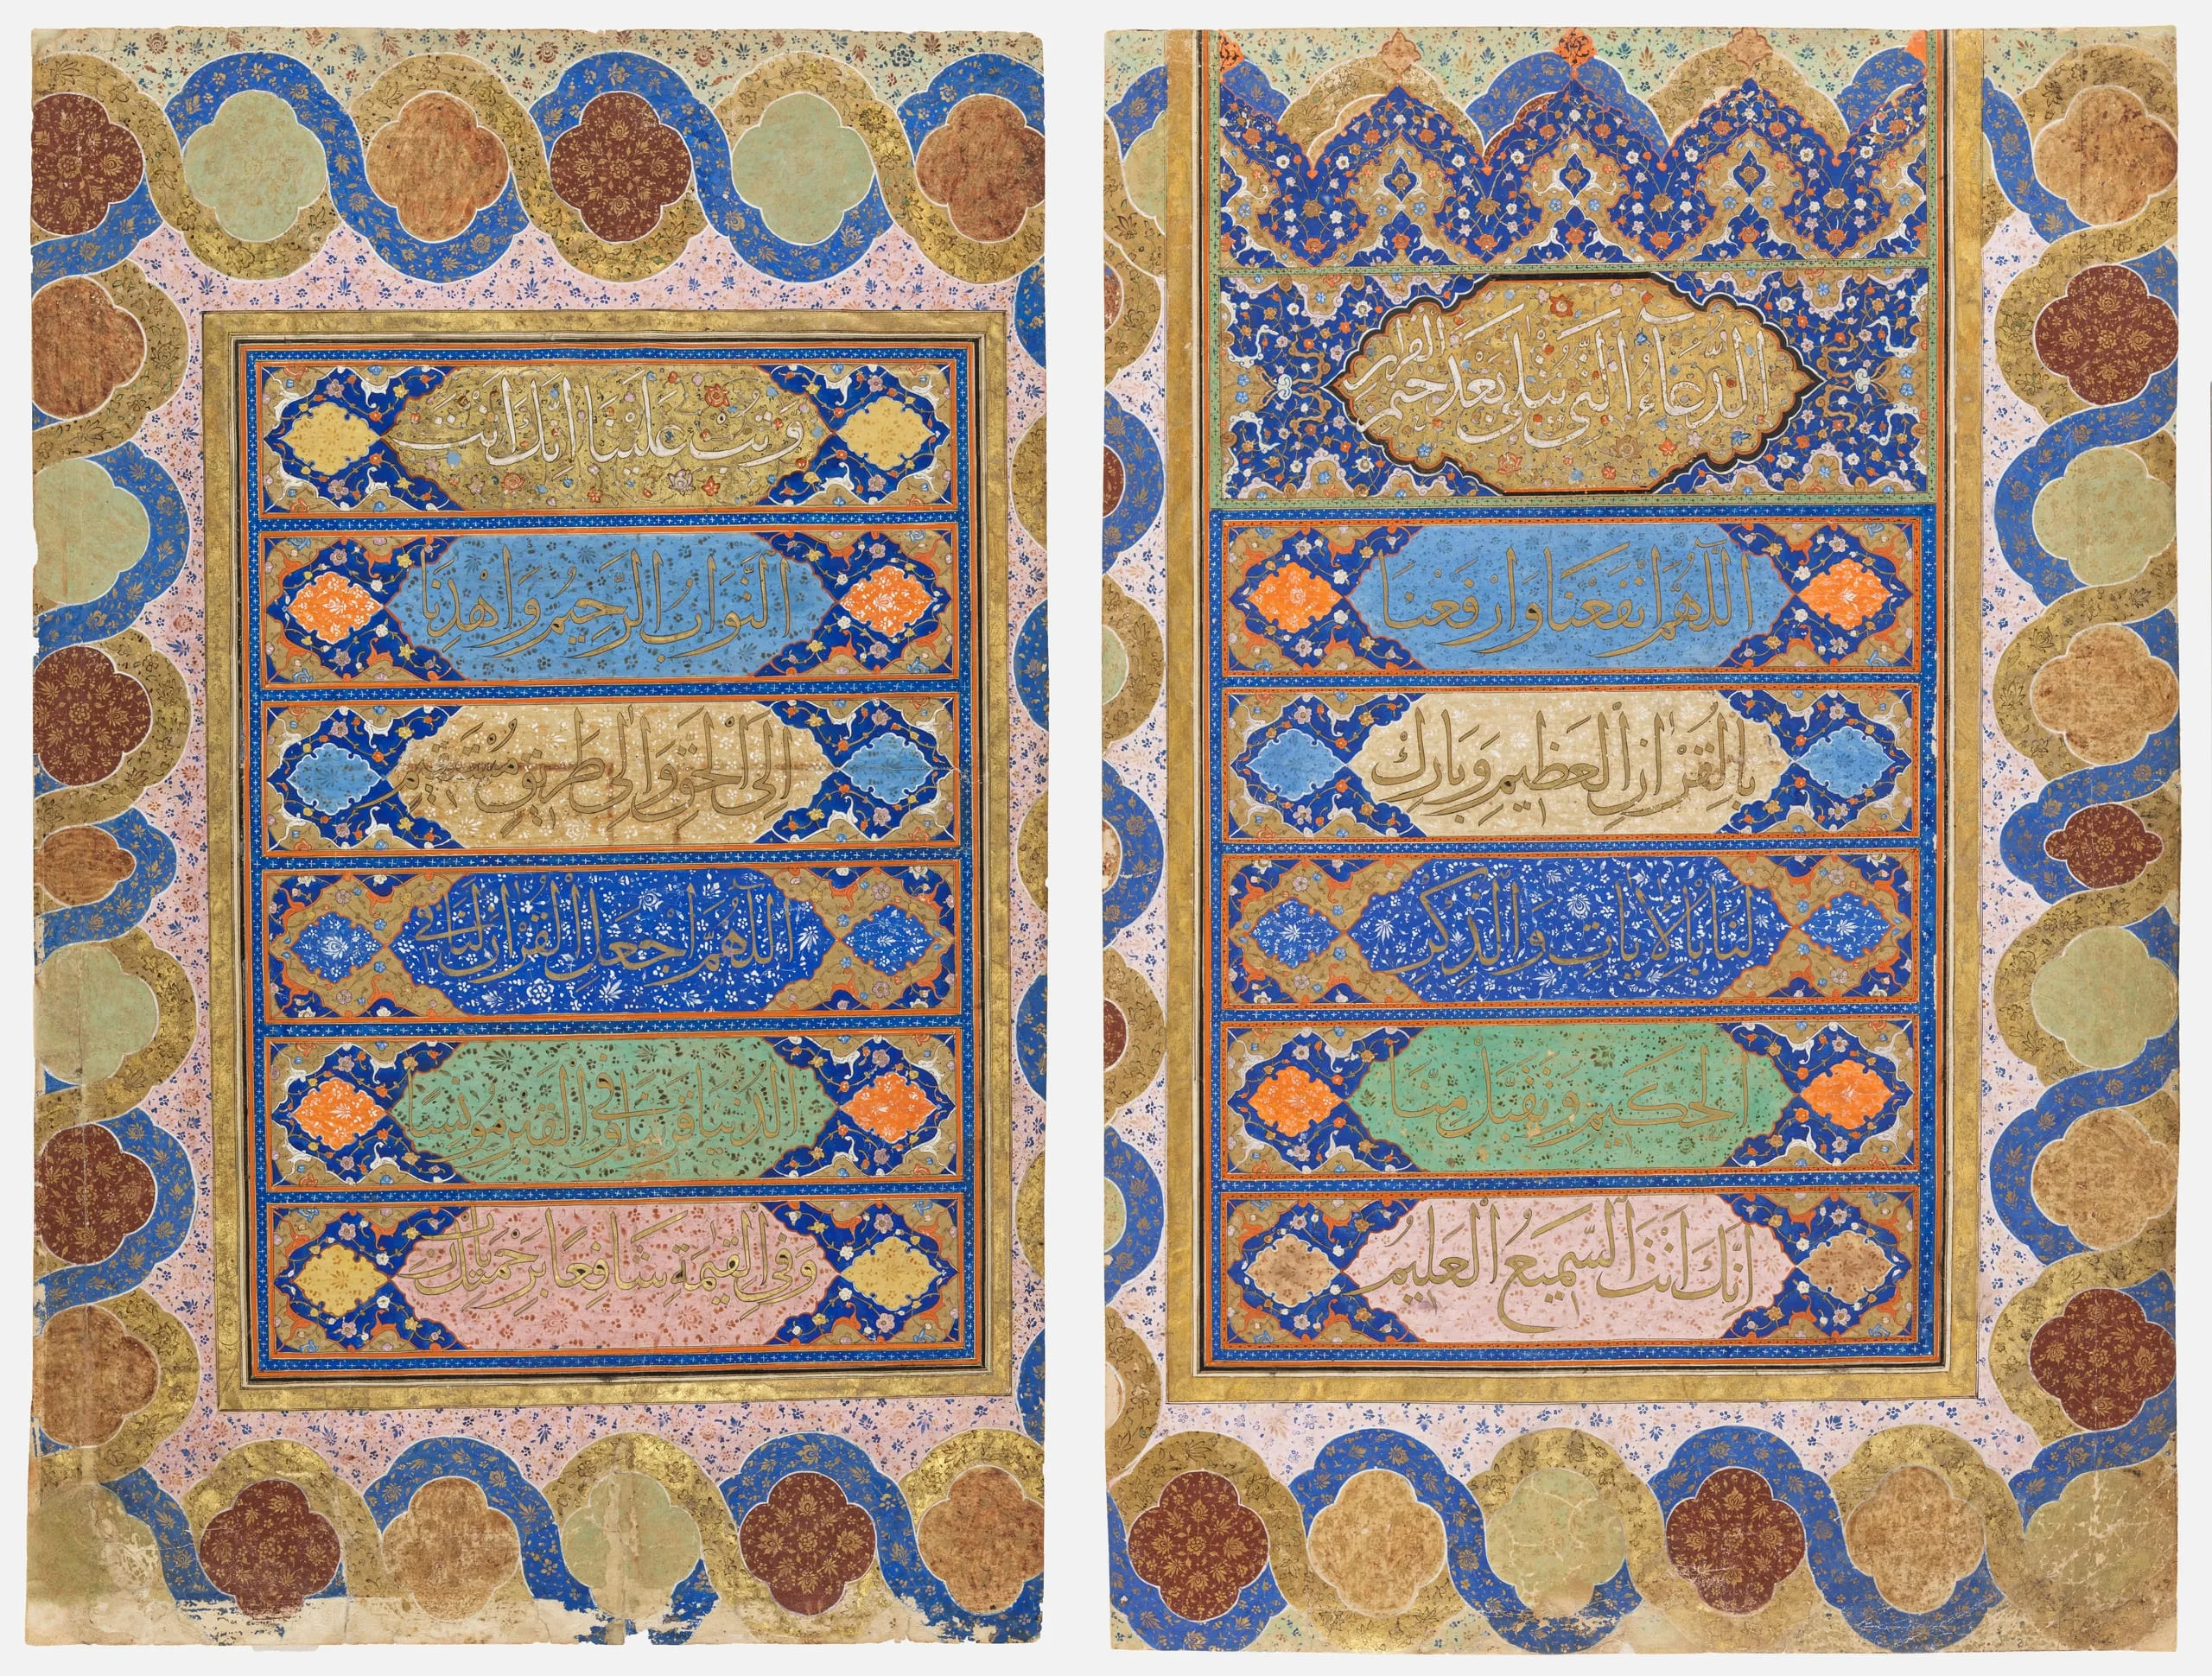 الدعاء التى يتلى بعد ختم القران
اللهم انفعنا وارفعنا
بالقران العظيم وبارك
لنا بالايات والذكر
الحكيم وتقبل منا
انك انت السميع العليم
وتب علينا انك انت
التواب الرحيم واهدنا
الى الحق والى طريق مستقيم
اللهم اجعل القران لنا فى
الدنيا قرينا وفى القبر مونسا
وفى القيمة شافعا برحمتك